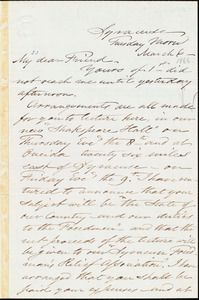 Syracuse
Tuesday Morn'
March 6
My dear Friend
Yours of 1st did
not reach me until yesterday
afternoon.
Arrangements are all made
for you to lecture here, in
our new Shakspeare Hall on
Thursday Eve' the 8 and at
Oneida twenty six miles
east of Syracuse on
Friday Eve' the 9th. I have ven-
tured to announce that your
subject will be "The State of
our Country and our duties
to the Freedmen" and that the
net proceeds of the lecture will
be given to our Syracuse
Relief Association. I have
arranged that you should be
paid your expenses and at